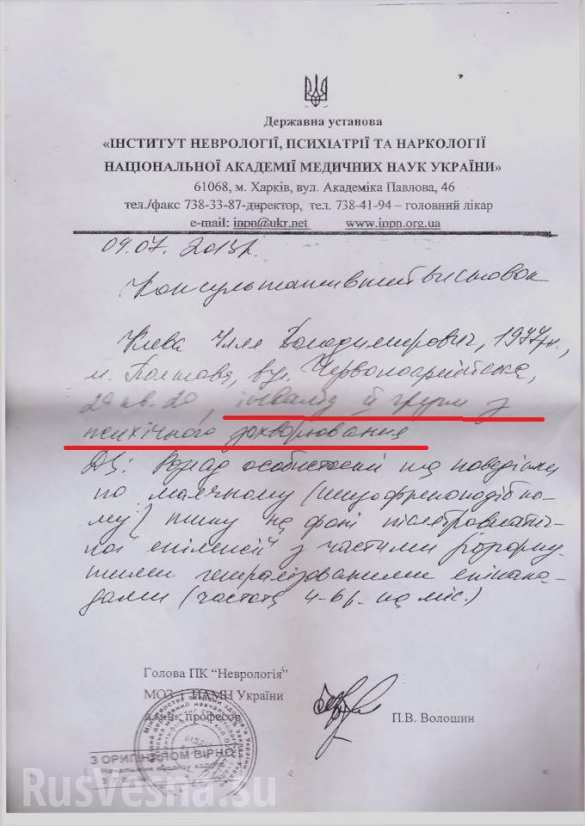 Державна установа
«ІНСТИТУТ НЕВРОЛОГІЇ, ПСИХІАТРІЇ ТА НАРКОЛОГІЇ
НАЦІОНАЛЬНОЇ АКАДЕМІЇ МЕДИЧНИХ НАУК УКРАЇНИ»
61068, м. Харків, вул. Академіка Павлова, 46
тел./факс 738-33-87-директор, тел. 738-41-94 – головний лікар
e-mail: inpn@ukr.net www.inpn.org.ua
09.07.2013р.
Консультативний висновок
Володимирович, 1977
м. Полтава, вул. Червоноармійська,
інвалід ІІ групи з
психічного захворювання
Розлад особистості та поведінки
по маячному (шизофреноподібно-
му) типу на фоні післятравматич-
ної епілепсії з частими
генералізованими епіпапа-
дами (частота 4-6 р. на міс.)
Голова ПК “Неврологія”
МОЗ і НАМН України
професор
П.В. Волошин
З ОРИГІНАЛОМ ВІРНО
RusVesna.su